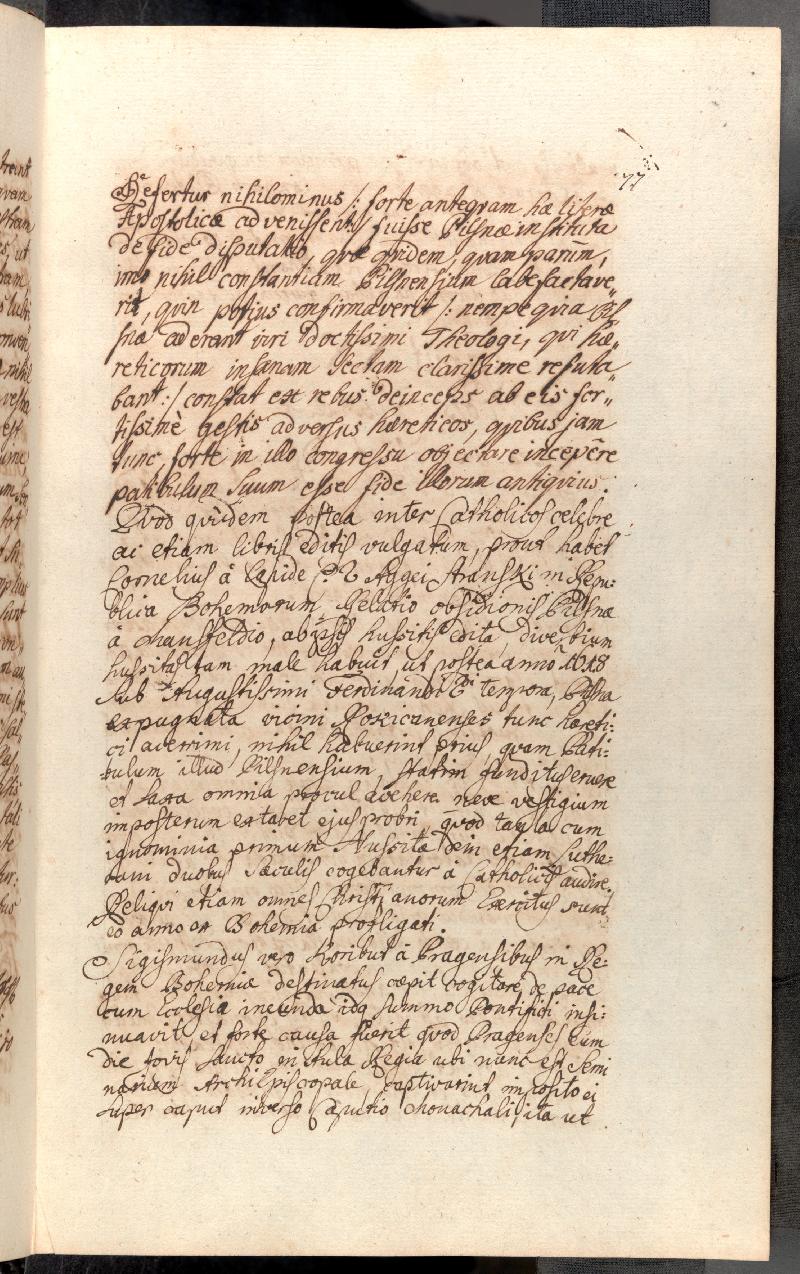 77
Refertur nihilominus /: forte antequam hæ literæ
Apostolicæ advenissent / fuisse Pilsnæ instituta
de fide disputatio, quæ quidem, quam parum,
imo nihil constantiam Pilsnensium labefactave„
rit, quin potius confirmaverit /: nempe quia Pil„
snæ aderant viri doctissimi Theologi, qui hæ„
reticorum insanam Sectam clarissime refuta„
bant :/ constat ex rebus deinceps ab eis for„
tissimè gestis adversus hæreticos, quibus jam
tunc, forte in illo congressu objectare incepêre
patibulum Suum esse fide illorum antiquius.
Quod quidem postea inter Catholicos celebre
ac etiam libris editis vulgatum, prout habet
Cornelius à Lapide Aggei Stranski in Repu:
blica Bohemorum, Relatio obsidionis Pilsnæ
à Mansfeldio, ab ipsis hussitis edita,
hussitas tam male habuit, ut postea anno 1618
Sub Augustissimi Ferdinandi tempora, Pilsna
expugnata vicini Rokicanenses tunc hæreti:
ci acerrimi, nihil habuerint prius, quam Pati:
bulum illud Pilsnensium, statim funditus eruere
et Saxa omnia procul avehere neve vestigium
imposterum extaret ejus probri, quod tanta cum
ignominia primum Hussitæ dein etiam Luthe:
rani duobus Sæculis cogebantur à Catholicis audire.
Reliqui etiam omnes Christianorum Exercitus sunt
eo anno ex Bohemia profligati.
Sigismundus vero Koribut à Pragensibus in Re:
gem Bohemiæ destinatus cœpit cogitare de pace
cum Ecclesia ineunda idq summo Pontifici insi:
nuavit, et forte causa fuerit quod Pragenses eum
die Jovis Sancto in Aula Regia ubi nunc est Semi
narium ArchiEpiscopale, captivarint imposito ei
super caput inverso Caputio Monachali, ita ut